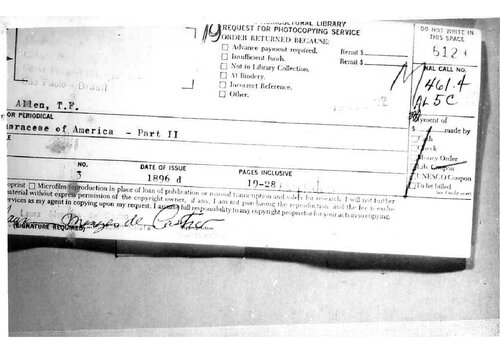 LIBRARY
REQUEST FOR PHOTOCOPYING SERVICE
ORDER RETURNED BECAUSE:
Advance payment required. Remit $
Insufficient funds. Remit $
Not in Library Collection.
At Bindery.
Incorrect Reference.
Other.
DO NOT WRITE IN
THIS SPACE
512
NAL CALL NO.
461.4
AL5C
Paulo - Brasil
Allen, T.F.
OR PERIODICAL
araceae of America - Part II
NO. DATE OF ISSUE PAGES INCLUSIVE
3 1896 d 19-28
ayment of
made by
Cash
Check
Money Order
Coupon
UNESCO Coupon
To be billed
(See Conditions)
print Microfilm reproduction in place of loan of publication or manual transcription and solely for research. I will not further
material without express permission of the copyright owner, if any. I am not purchasing the reproduction, and the fee is exclu
services as agent in copying upon my request. I assume full responsibility to any copyright proprietor for your acts in so copying.
Laura
de Castro
(SIGNATURE REQUIRED)